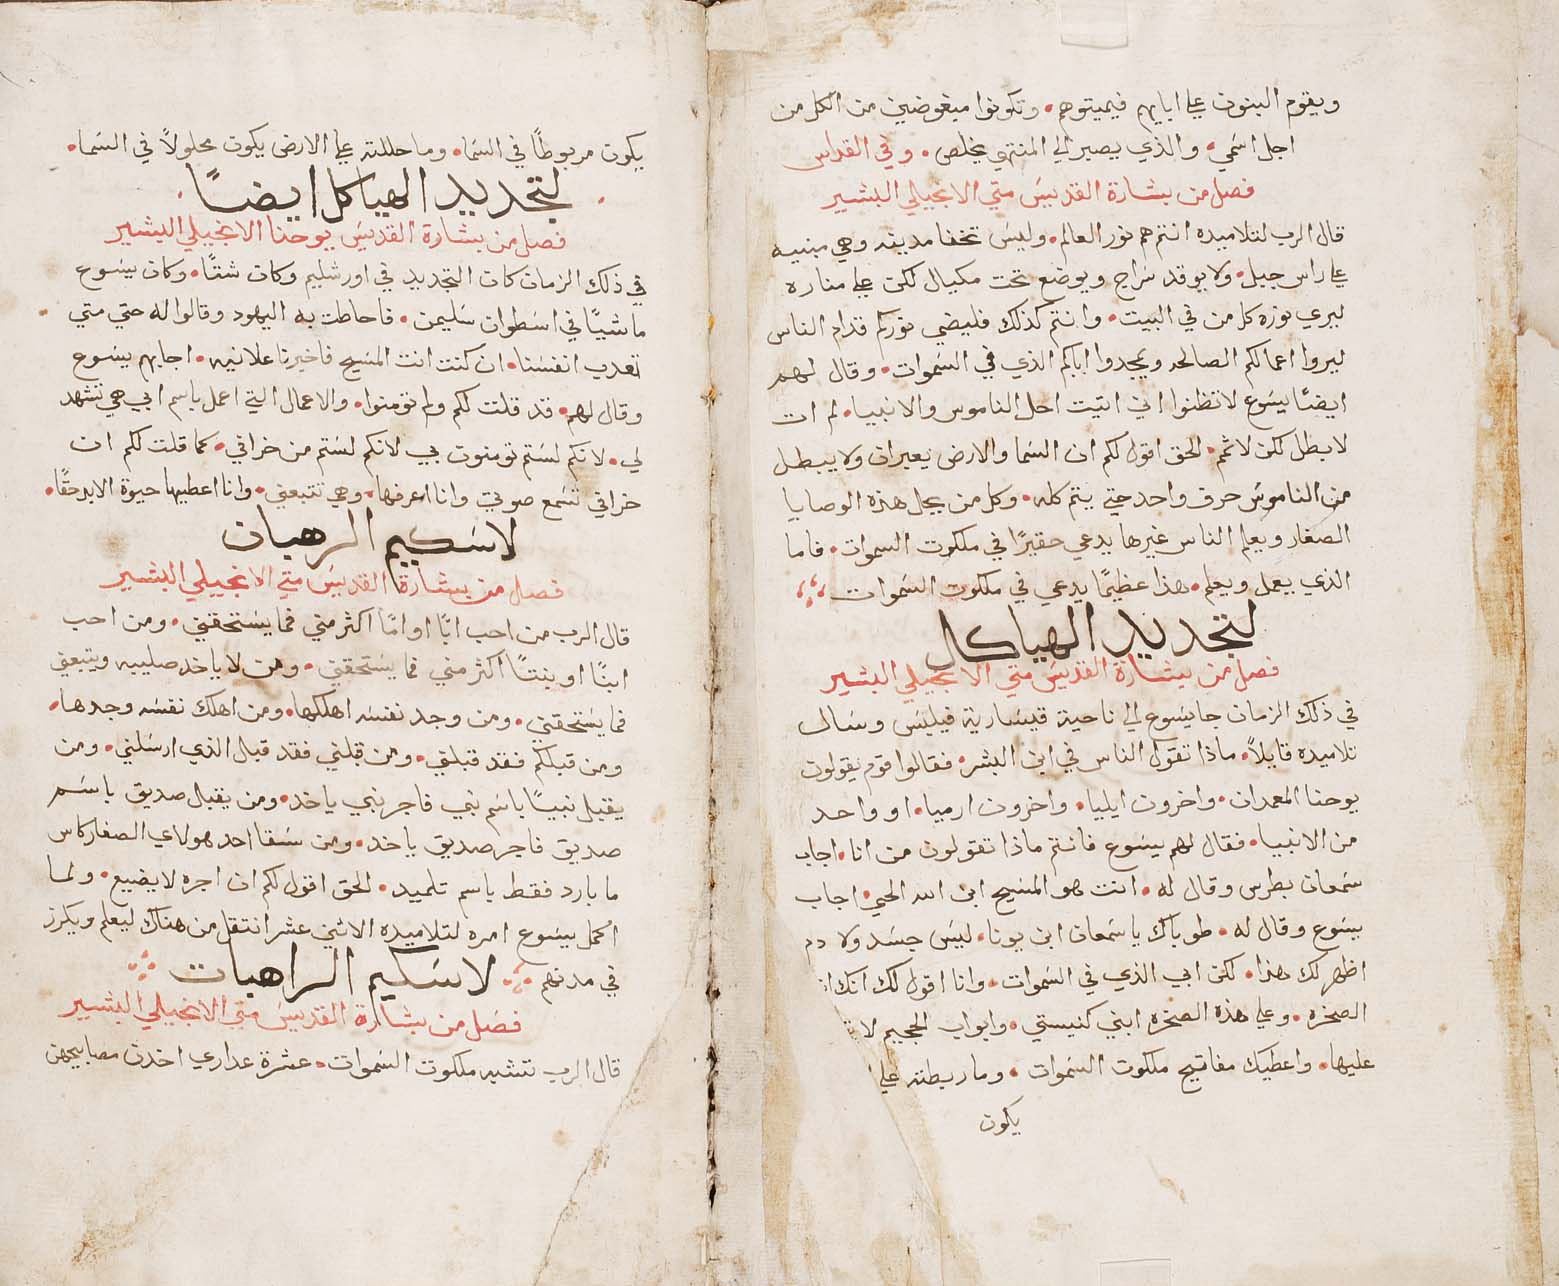 ويقوم البنون علي ابايهم فيميتوهم • وتكونوا مبغوضين من الكل من
اجل اسمي • والذي يصبر الي المنتهي يخلص • وفي القداس
فصل من بشارة القديس متي الانجيلي البشير
قال الرب لتلاميذه انتم هم نور العالم • وليس تخفا مدينه وهي مبنيه
علي راس جبل • ولا يوقد سراج ويوضع تحت مكيال لكن علي مناره
ليري نوره كل من في البيت • وانتم كذلك فليضي نوركم قدام الناس
ليروا اعمالكم الصالحه ويمجدوا اباكم الذي في السموات • وقال لهم
ايضًا يسوع لا تظنوا اني اتيت احل الناموس والانبيا • لم ات
لابطل لكن لاتمم • الحق اقول لكم ان السما والارض يعبران ولا يبطل
من الناموس حرف واحد حتي يتم كله • وكل من يحل هذه الوصايا
الصغار ويعلم الناس غيرها يدعي حقيرًا في ملكوت السموات • فاما
الذي يعمل ويعلم • هذا عظيمًا يدعي في ملكوت السموات
لتجديد الهياكل
فصل من بشارة القديس متي الانجيلي البشير
في ذلك الزمان جا يسوع الي ناحية قيسارية فيلبس وسال
تلاميده قايلاً • ماذا تقول الناس في ابن البشر • فقالوا قوم يقولون
يوحنا المعمدان • واخرون ايليا • واخرون ارميا • او واحد
من الانبيا • فقال لهم يسوع فانتم ماذا تقولون من انا • اجاب
سمعان بطرس وقال له • انت هو المسيح ابن الله الحي • اجاب
يسوع وقال له • طوباك يا سمعان ابن يونا • ليس جسد ولا دم
اظهر لك هذا • لكن ابي الذي في السموات • وانا اقول لك انك
الصخره • وعلي هذه الصخره ابني كنيستي • وابواب الجحيم لا
عليها • واعطيك مفاتيح ملكوت السموات • وما ربطته علي
يكون
يكون مربوطًا في السما • وما حللته علي الارض يكون محلولاً في السما •
لتجديد الهياكل ايضًا
فصل من بشارة القديس يوحنا الانجيلي البشير
في ذلك الزمان كان التجديد في اورشليم وكان شتًا • وكان يسوع
ماشيًا في اسطوان سليمن • فاحاطت به اليهود وقالوا له حتي متي
تعدب انفسنا • ان كنت انت المسيح فاخبرنا علانيه • اجابهم يسوع
وقال لهم • قد قلت لكم ولم تومنوا • والاعمال التي اعمل باسم ابي هي تشهد
لي • لانكم لستم تومنون بي لانكم لستم من خرافي • كما قلت لكم ان
خرافي تسمع صوتي وانا اعرفها • وهي تتبعني • وانا اعطيها حيوة الابد حقًا •
لاسكيم الرهبان
فصل من بشارة القديس متي الانجيلي البشير
قال الرب من احب ابًا او امًا اكثر مني فما يستحقني • ومن احب
ابنًا او بنتًا اكثر مني فما يستحقني • ومن لا ياخد صليبه ويتبعني
فما يستحقني • ومن وجد نفسه اهلكها • ومن اهلك نفسه وجدها •
ومن قبلكم فقد قبلني • ومن قبلني فقد قبل الذي ارسلني • ومن
يقبل نبيًا باسم نبي فاجر نبي ياخد • ومن يقبل صديق باسم
صديق فاجر صديق ياخد • ومن سقا احد هولاي الصغار كاس
ما بارد فقط باسم تلميد • الحق اقول لكم ان اجره لا يضيع • ولما
اكمل يسوع امره لتلاميده الاثني عشر انتقل من هناك ليعلم ويكرز
في مدنهم لاسكيم الراهبات
فصل من بشارة القديس متي الانجيلي البشير
قال الرب تتشبه ملكوت السموات • عشرة عداري اخدن مصابيحهن